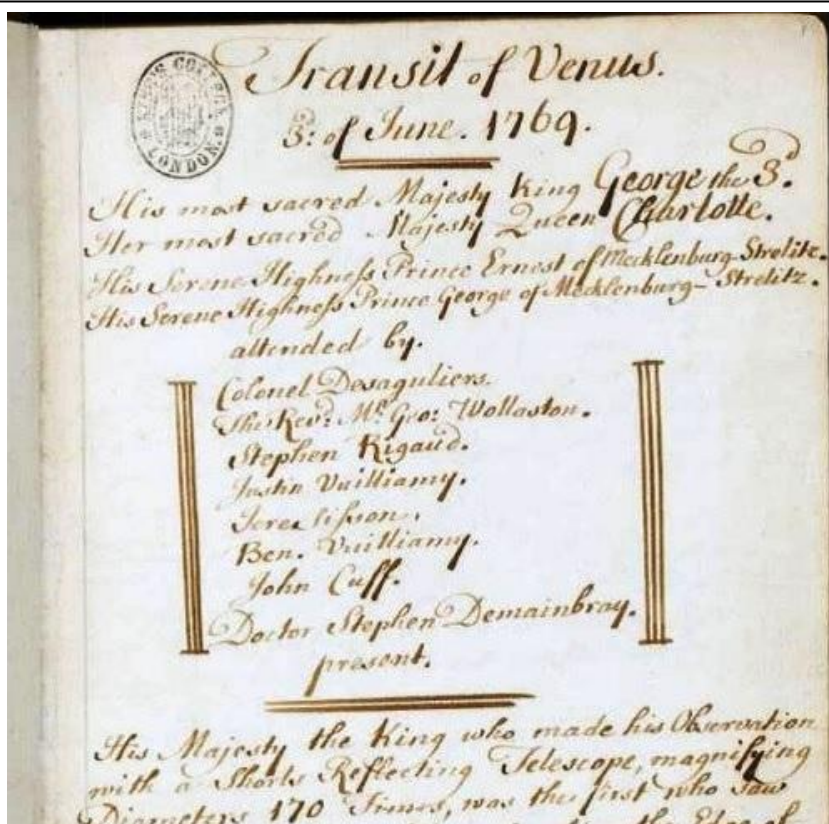 KING'S COLLEGE LONDON
Transit of Venus.
3: of June. 1769.
His most sacred Majesty King George the 3d.
Her most sacred Majesty Queen Charlotte.
His Serene Highness Prince Ernest of Mecklenburg-Strelitz.
His Serene Highness Prince George of Mecklenburg-Strelitz.
attended by.
Colonel Desaguliers.
The Revd: Mr. Geo: Wollaston.
Stephen Rigaud.
Justin Vuilliamy.
Jere Sisson.
Ben. Vuilliamy.
John Cuff.
Doctor Stephen Demainbray.
present.
His Majesty the King who made his Observation
with a Shorts Reflecting Telescope, magnifying
Diameters 170 Times, was the first who saw
the Edge of